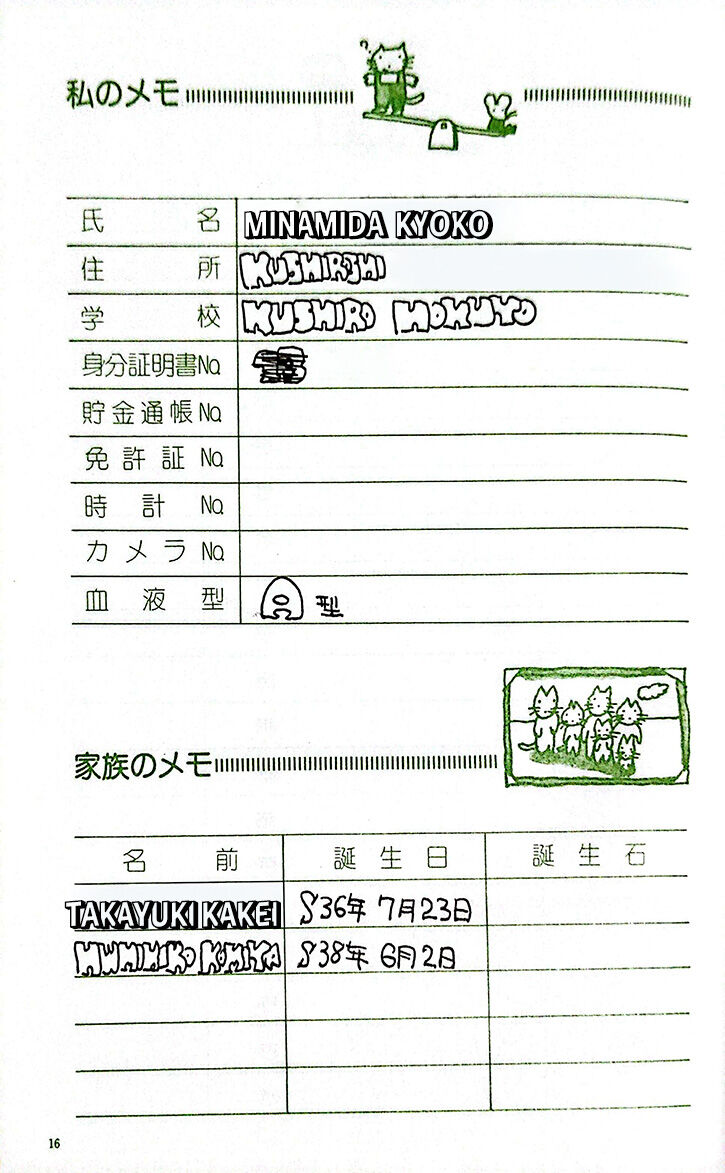 私のメモ
?
氏名 MINAMIDA KYOKO
住所 KUSHIROSHI
学校 KUSHIRO HOKUYO
身分証明書No.
貯金通帳No.
免許証No.
時計No.
カメラNo.
血液型 A型
家族のメモ
名前 誕生日 誕生石
TAKAYUKI KAKEI S36年7月23日
KOMIYA S38年6月2日
16